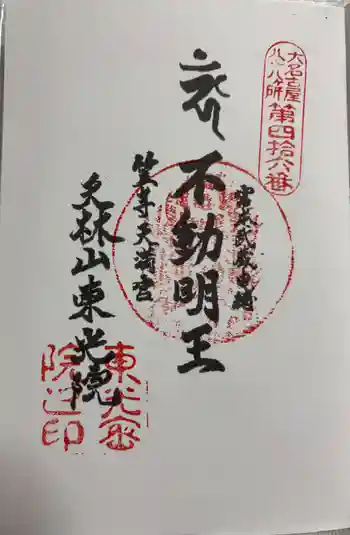 大名古屋
八十八ヶ所
第四拾六番
宮本武蔵
奉 不動明王
笠寺天満宮
天林山東光院
東光密
院之印